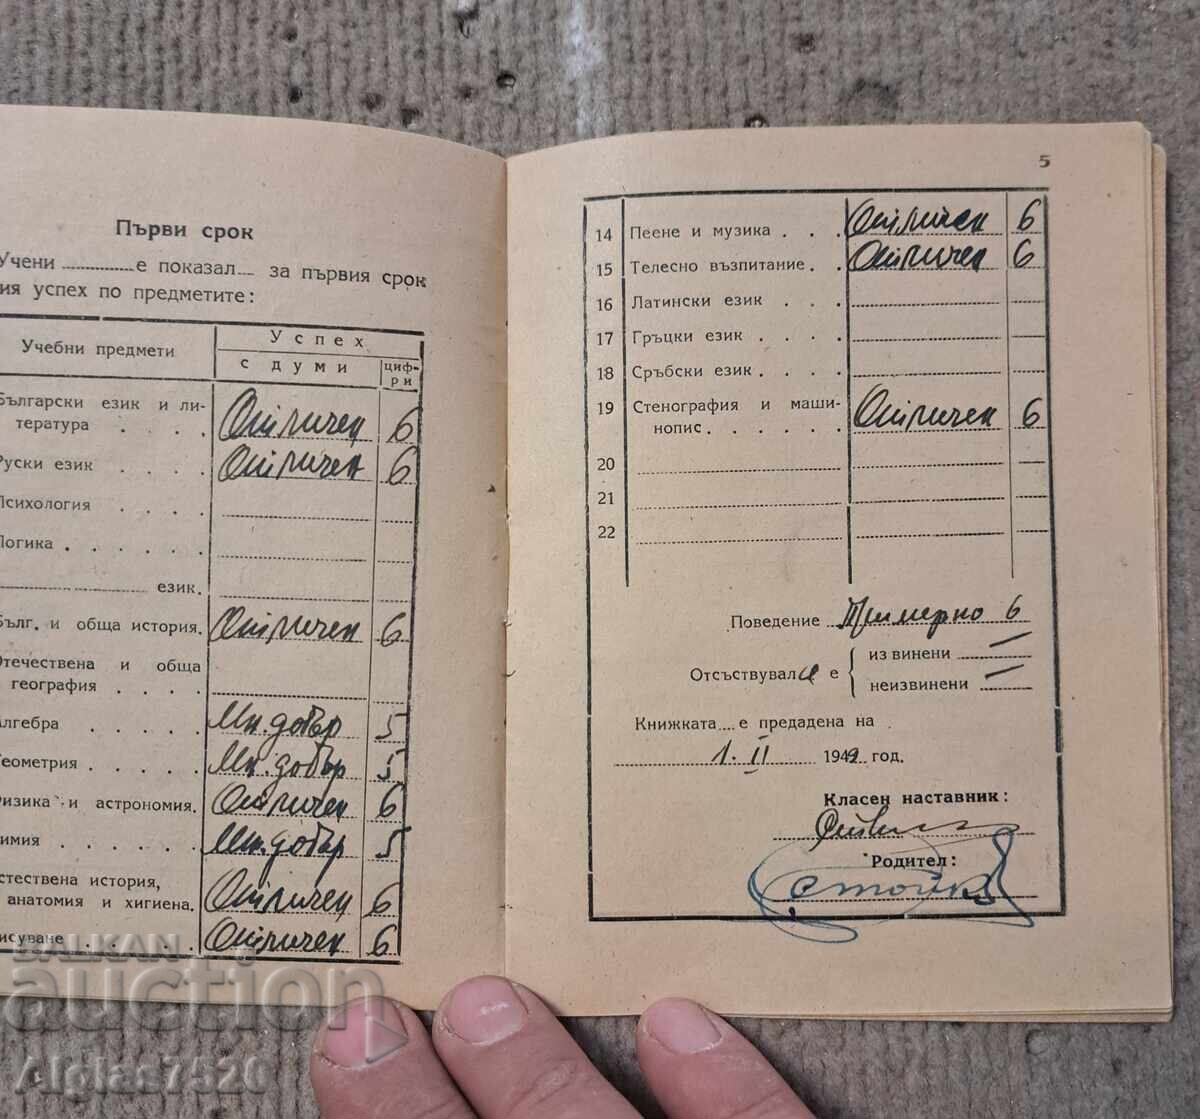 Първи срок
Учени е показал за първия срок
ия успех по предметите:
Учебни предмети
Успех
с думи
цифри
Български език и ли-
тература . . . . Отличен 6
Руски език . . . . Отличен 6
Психология . . . .
Логика . . . . . .
език.
Бълг. и обща история. Отличен 6
Отечествена и обща
география . . . .
Алгебра . . . . . Мн. добър 5
Геометрия . . . . Мн. добър 5
Физика и астрономия. Отличен 6
Химия . . . . . . Мн. добър 5
Естествена история,
анатомия и хигиена. Отличен 6
Рисуване . . . . . Отличен 6
5
14 Пеене и музика . . . Отличен 6
15 Телесно възпитание . . Отличен 6
16 Латински език . . .
17 Гръцки език . . . .
18 Сръбски език . . . .
19 Стенография и маши-
нопис . . . . . . Отличен 6
20
21
22
Поведение Примерно 6
Отсъствувал е
извинени —
неизвинени —
Книжката е предадена на
1. II 1949 год.
Класен наставник:
Родител:
BALKAN
auction
Alglas7520